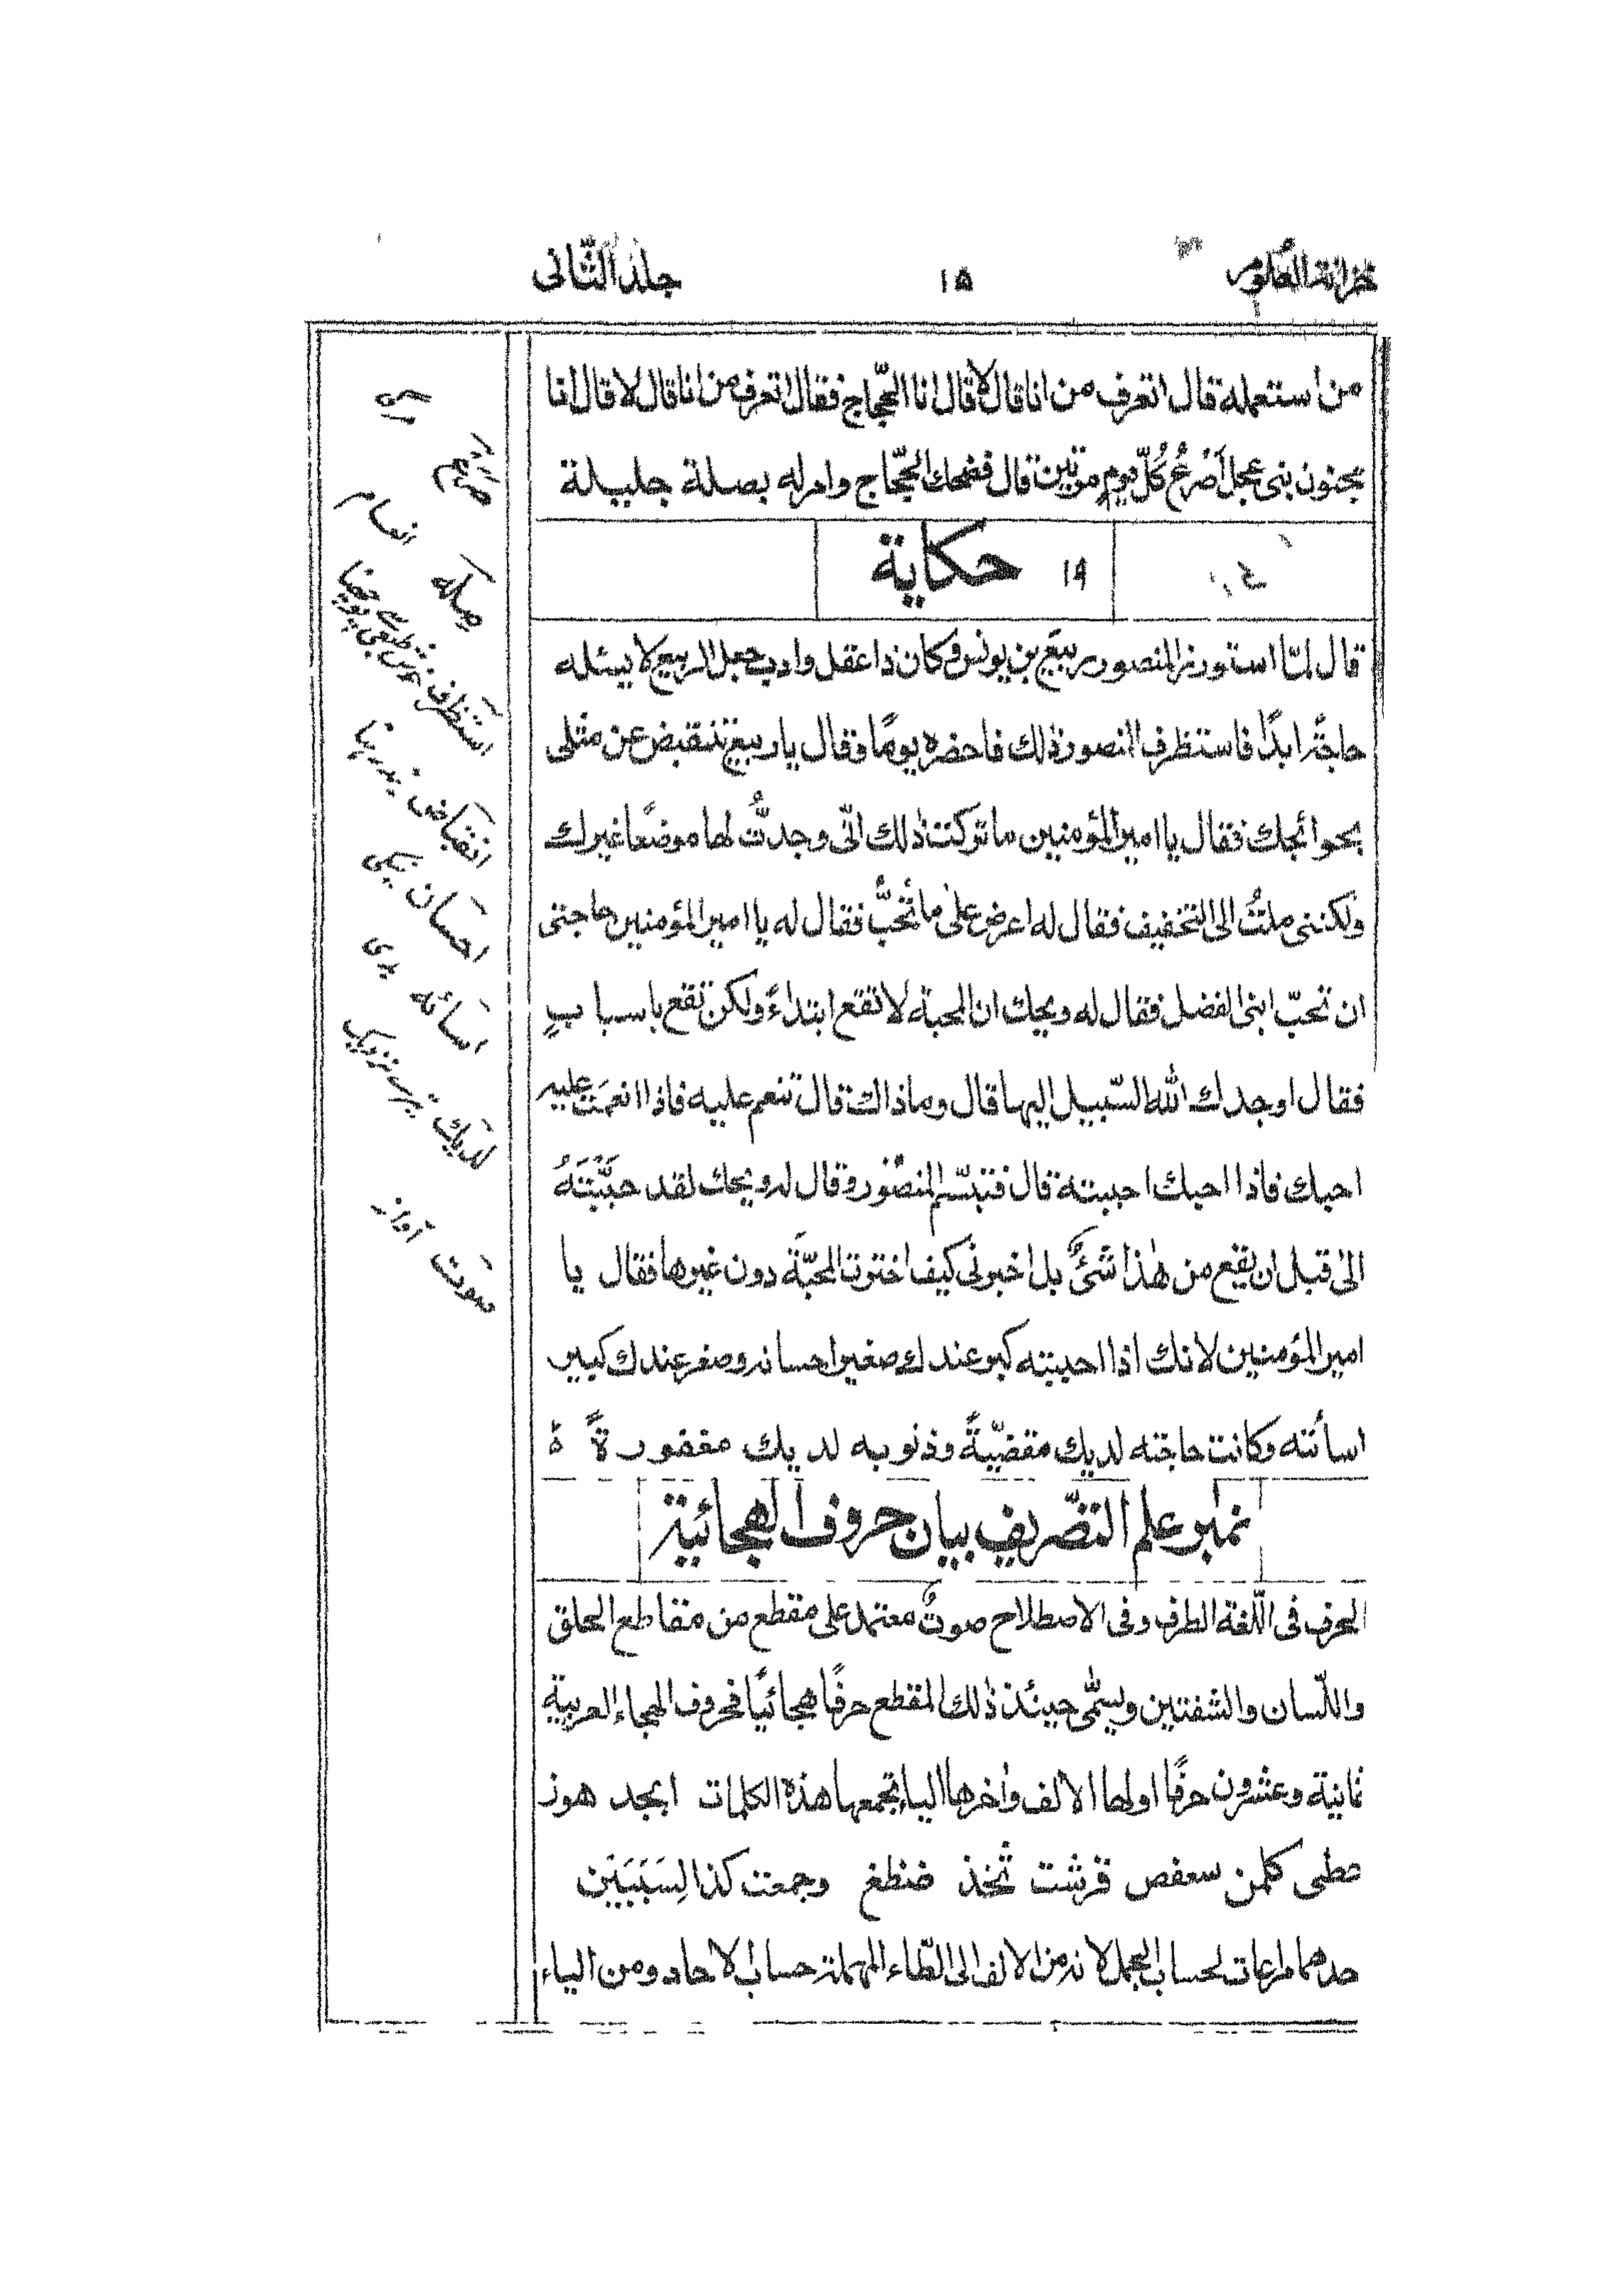 خزانة العلوم ١٥ جلد الثّانى
من استعمله قال اتعرف من انا قال لا قال انا الحّجاج فقال اتعرف من انا قال لا قال انا
مجنون بنى عجل اُصرَعُ كُلّ يومٍ مرتين قال فضحك الحّجاج وامر له بصلة جليلة
١٩ حكاية
قال لمّا استوزر المنصور ربيع بن يونس وكان ذا عقل وادب جعل الربيع لا يسئله
حاجةً ابدًا فاستظرف المنصور ذلك فاحضره يومًا وقال يا ربيع تنقبض عن مثلى
بحوائجك فقال يا امير المؤمنين ما تركت ذلك انّى وجدتُّ لها موضعًا غيرك
ولكننى ملتُ الى التخفيف فقال له اعرض علىٰ ما تُحبُّ فقال له يا امير المؤمنين حاجتى
ان تحبّ ابنى الفضل فقال له ويحك ان المحبة لا تقع ابتداءً ولكن تقع باسبابٍ
فقال اوجدك الله السّبيل اليها قال وما ذاك قال تنعم عليه فاذا انعمت عليه
احبك فاذا احبك احببته قال فتبسّم المنصُور وقال له ويحك لقد حبَّبْتَهُ
الىٰ قبل ان يقع من هٰذا شئٌ بل اخبرنى كيف اخترت المحبّة دون غيرها فقال يا
امير المؤمنين لانك اذا احببته كبر عندك صغير احسانه وصغر عندك كبير
اسأته وكانت حاجته لديك مقضيّةً وذنوبه لديك مغفورةً ة
نمبر علم التصّريف بيان حروف الهجائية
الحرف فى اللّغة الطرف وفى الاصطلاح صوتٌ معتمد على مقطع من مقاطع الحلق
واللّسان والشفتين ويسمّٰى حينئذ ذٰلك المقطع حرفًا هجائيًا فحروف الهجاء العربية
ثمانية وعشرون حرفًا اولها الالف واٰخرها الياء تجمعها هذه الكلمات ابجد هوز
حطى كلمن سعفص قرشت ثخذ ضظغ وجمعت كذا لِسَبَبَيْن
احدهما مراعات لحساب الجمل لانه من الالف الى الطّاء المهملة حساب الاحاد ومن الياء
صرَع
صله
انعام
استظراف
انقباض
احسان نيكى
اسائه بدى
لديك تيرے نزديک
صوت آواز